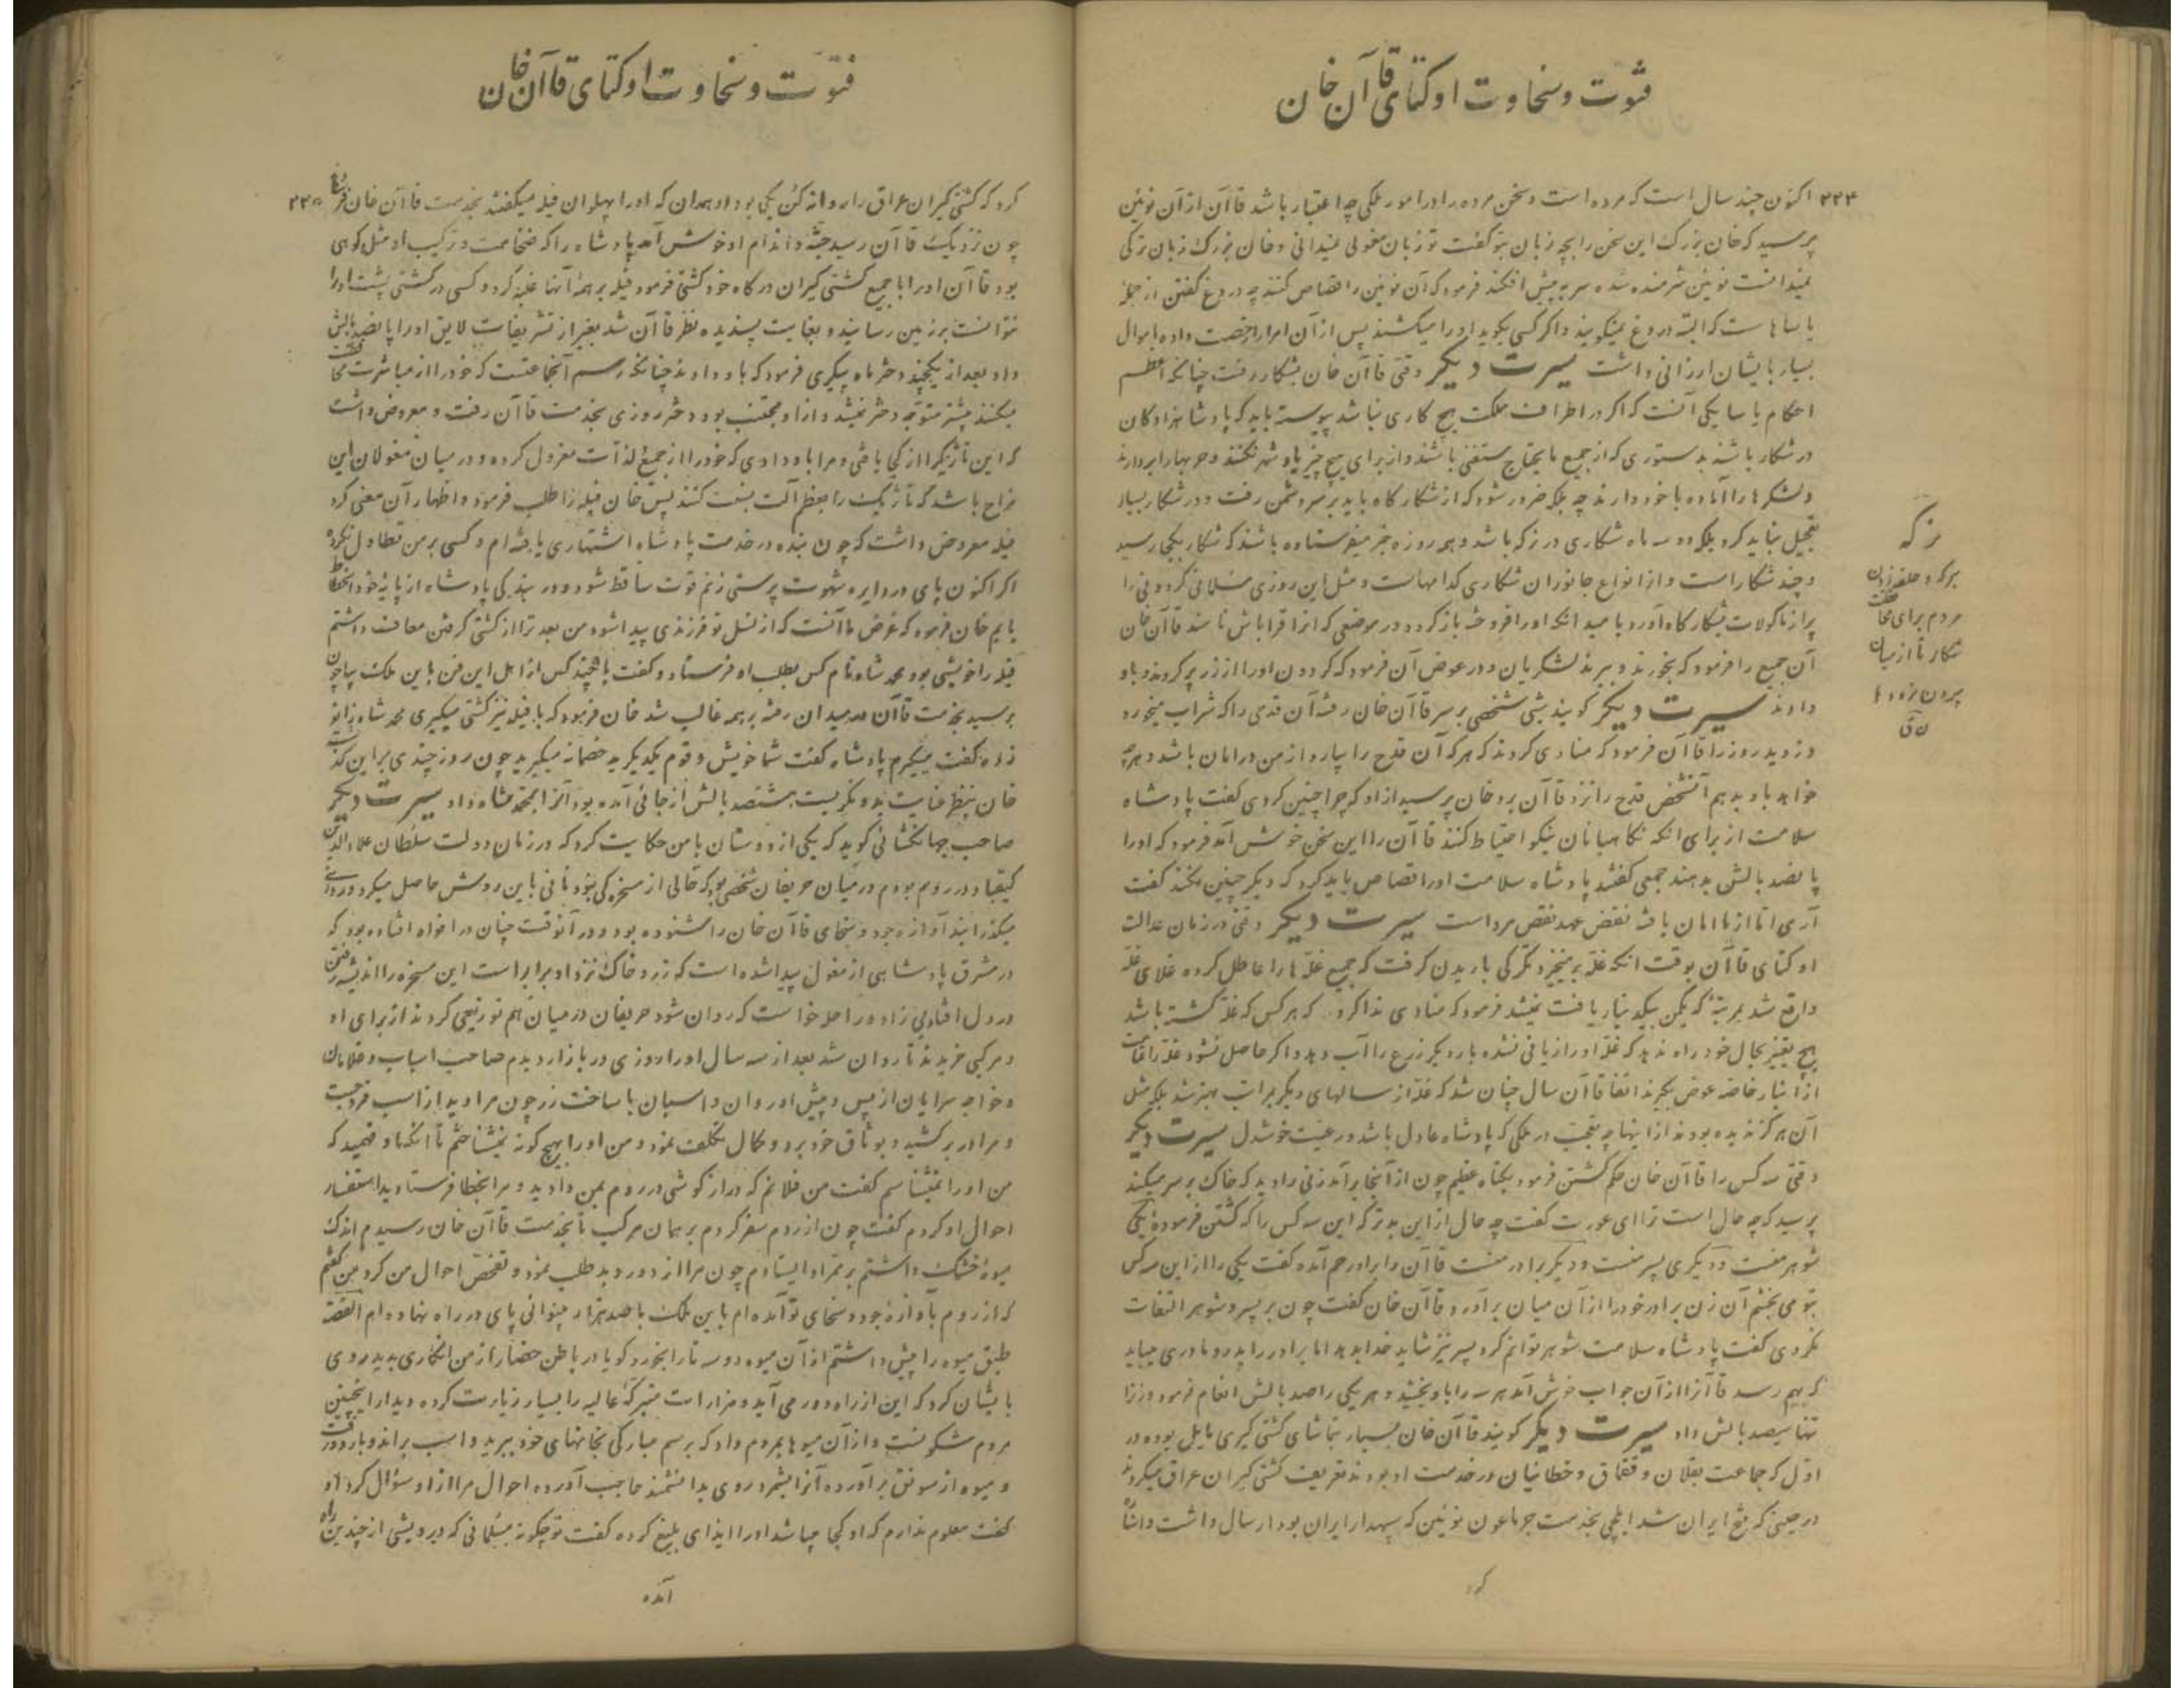 فتوت و سخاوت اوکتای قاآن خان
۲۲۴ اکنون چند سال است که مرده است و سخن مرده را در امور ملکی چه اعتبار باشد قاآن از آن نوئین
پرسید که خان بزرک این سخن را بچه زبان بتو کفت تو زبان مغولی نمیدانی و خان بزرک زبان ترکی
نمیدانست نوئین شرمنده شده سر به پیش افکند فرمود که آن نوئین را قصاص کنند چه دروغ کفتن از جمله
یاساهاست که البته دروغ نمیکویند و اکر کسی بکوید او را میکشند پس از آن امرا را رخصت داده اموال
بسیار بایشان ارزانی داشت سیرت دیکر وقتی قاآن خان بشکار رفت چنانکه اعظم
احکام یاسا یکی آنست که اکر در اطراف مملکت هیچ کاری نباشد پیوسته باید که پادشاهزادکان
در شکار باشند بدستوری که از جمیع مایحتاج مستغنی باشند و از برای هیچ چیز یاد شهر نکنند و حربها را بردارند
و لشکرها را آماده با خود دارند چه بلکه ضرور شود که از شکارکاه باید بر سر دشمن رفت و در شکار بسیار
تعجیل نباید کرد بلکه دو سه ماه شکاری در نرکه باشد و هر روزه خبر میفرستاده باشند که شکار بکجا رسید
و چند شکار است و از انواع جانوران شکاری کدامهاست و مثل این روزی مسلمانی کردونی را
پر از ماکولات بشکارکاه آورد بامید آنکه او را فروخته باز کردد در موضعی که آنرا قراباش نامند قاآن خان
آن جمیع را فرمود که بخورند و ببرند لشکریان و در عوض آن فرمود که کردون او را از زر پر کردند و باو
دادند سیرت دیکر کویند شبی شخصی بر سر قاآن خان رفته آن قدحی را که شراب میخورد
دزدید روز را قاآن فرمود که منادی کردند که هر که آن قدح را بیارد از من در امان باشد و هرچه
خواهد باو بدهم آنشخص قدح را نزد قاآن برد خان پرسید از او که چرا چنین کردی کفت پادشاه
سلامت از برای آنکه نکاهبانان نیکو احتیاط کنند قاآن را این سخن خوش آمد فرمود که او را
پانصد بالش بدهند جمعی کفتند پادشاه سلامت او را قصاص باید کرد که دیکر چنین نکند کفت
آری اما از ما امان یافته نقض عهد نقص مرد است سیرت دیکر وقتی در زمان عدالت
اوکتای قاآن بوقت آنکه غله بر میخیزد تکرک باریدن کرفت که جمیع غلها را عاطل کرده غلای غله
واقع شد بمرتبهٔ که یکمن بیکدینار یافت نمیشد فرمود که منادی ندا کرد که هر کس که غله کشته باشد
هیچ تغییر بحال خود راه ندهد که غله او را زیانی نشده بار دیکر زرع را آب دهد و اکر حاصل نشود غله را
از انبار خاصه عوض بکیرند اتفاقا آن سال چنان شد که غله از سالهای دیکر بمراتب بهتر شد بلکه مثل
آن هرکز ندیده بودند از اینها چه تعجب در ملکی که پادشاه عادل باشد و رعیت خوشدل سیرت دیکر
وقتی سه کس را قاآن خان حکم کشتن فرمود بکناه عظیم چون از آنجا برآمد زنی را دید که خاک بر سر میکند
پرسید که چه حال است ترا ای عورت کفت چه حال از این بدتر که این سه کس را که کشتن فرمودهٔ یکی
شوهر منست و دیکری پسر منست و دیکر برادر منست قاآن را بر او رحم آمده کفت یکی را از این سه کس
بتو می بخشم آن زن برادر خود را از آن میان برآورد قاآن خان کفت چون بر پسر و شوهر التفات
نکردی کفت پادشاه سلامت شوهر توانم کرد پسر نیز شاید خدا بدهد اما برادر را پدر و مادری میباید
که بهم رسد قاآن را از آن جواب خوش آمد هر سه را باو بخشید و هر یکی را صد بالش انعام فرمود و زن را
تنها سیصد بالش داد سیرت دیکر کویند قاآن خان بسیار بتماشای کشتی کیری مایل بوده در
اول که جماعت بقلان و قفقاق و خطائیان در خدمت او بودند تعریف کشتی کیران عراق میکردند
در حینی که فتح ایران شد ایلچی بخدمت جرماعون نوئین که سپهدار ایران بود ارسال داشت و اشاره
کرد
نرکه
مردم برای
شکار تا از میان
بیرون نرود
فتوت و سخاوت اوکتای قاآن خان
کرد که کشتی کیران عراق را روانه کن یکی بود از همدان که او را پهلوان فیله میکفتند بخدمت قاآن خان فرستاد ۲۲۵
چون نزدیک قاآن رسید جثه و اندام او خوش آمد پادشاه را که ضخامت و ترکیب او مثل کوهی
بود قاآن او را با جمیع کشتی کیران درکاه خود کشتی فرمود فیله بر همهٔ آنها غلبه کرد و کسی در کشتی پشت او را
نتوانست بر زمین رسانید و بغایت پسندیده نظر قاآن شد بغیر از تشریفات لایق او را پانصد بالش
داد بعد از یکچند دختر ماه پیکری فرمود که باو دادند چنانکه رسم آنجماعتست که خود را از مباشرت
میکنند پیشتر متوجه دختر نمیشد و از او مجتنب بود دختر روزی بخدمت قاآن رفت و معروض داشت
که این تاژیک را از کجا یافتی و مرا باو دادی که خود را از جمیع لذات معزول کرده و در میان مغولان این
مزاح باشد که تاژیک را بعظم آلت نسبت کنند پس خان فیله را طلب فرمود و اظهار آن معنی کرد
فیله معروض داشت که چون بنده در خدمت پادشاه اشتهاری یافته ام و کسی بر من تطاول نکرده
اکر اکنون پای در دایره شهوت پرستی زنم قوت ساقط شود و در بندکی پادشاه از پایهٔ خود انحطاط
یابم خان فرمود که غرض ما آنست که از نسل تو فرزندی پیدا شود من بعد ترا از کشتی کرفتن معاف داشتم
فیله را خویشی بود محمد شاه نام کس بطلب او فرستاد و کفت با چند کس از اهل این فن باین ملک بیا چون
برسید بخدمت قاآن در میدان رفته بر همه غالب شد خان فرمود که با فیله نیز کشتی میکیری محمد شاه زانو
زده کفت میکیرم پادشاه کفت شما خویش و قوم یکدیکرید خصمانه میکیرید چون روز چندی بر این کذشت
خان بنظر عنایت بدو نکریست هشتصد بالش از جائی آمده بود آنرا بمحمد شاه داد سیرت دیکر
صاحب جهانکشائی کوید که یکی از دوستان با من حکایت کرد که در زمان دولت سلطان علاءالدین
کیقباد در روم بودم در میان حریفان شخصی بود که خالی از مسخره کی نبود نانی باین روش حاصل میکرد و روز
میکذرانید آوازه جود و سخای قاآن خان را شنوده بود و در آنوقت چنان در افواه افتاده بود که
در مشرق پادشاهی از مغول پیدا شده است که زر و خاک نزد او برابر است این مسخره را اندیشه رفتن
در دل افتاد بی زاد و راحله خواست که روان شود حریفان در میان هم توزیعی کردند از برای او
و مرکبی خریدند تا روان شد بعد از سه سال او را روزی در بازار دیدم صاحب اسباب و غلامان
و خواجه سرایان از پس و پیش او روان و اسبان با ساخت زر چون مرا دید از اسب فروجست
و مرا در بر کشید و بوثاق خود برد و کمال تکلف نمود و من او را بهیچ کونه نمیشناختم تا آنکه او فهمید که
من او را نمیشناسم کفت من فلانم که دراز کوشی در روم بمن دادید و مرا بخطا فرستادید استفسار
احوال او کردم کفت چون از روم سفر کردم بر همان مرکب تا بخدمت قاآن خان رسیدم اندک
میوهٔ خشک داشتم بر ممر او ایستادم چون مرا از دور دید طلب نمود و تفحص احوال من کرد من کفتم
که از روم بآوازهٔ جود و سخای تو آمده ام باین ملک با صد هزار بینوائی پای در راه نهاده ام القصه
طبق میوه را پیش داشتم از آن میوه دو سه تا را بخورد کویا در باطن حضار از من انکاری بدید روی
بایشان کرد که این از راه دور می آید و مزارات متبرکهٔ عالیه را بسیار زیارت کرده دیدار اینچنین
مردم شکونست و از آن میوها بمردم داد که برسم مبارکی بخانهای خود ببرید و اسب براند و باردو رفت
و میوه از سونق برآورده آنرا بشمرد روی بدانشمند حاجب آورده احوال مرا از او سؤال کرد او
کفت معلوم ندارم که او کجا میباشد او را ایذای بلیغ کرده کفت تو چکونه مسلمانی که درویشی از چندین راه
آمده